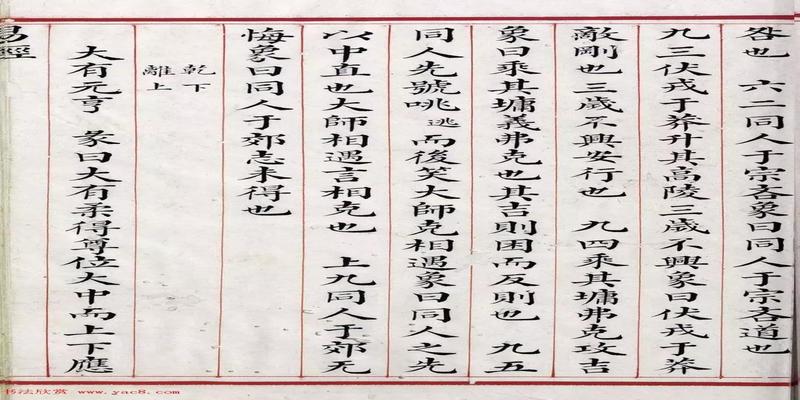 咎也　六二同人于宗吝象曰同人于宗吝道也
九三伏戎于莽升其高陵三歲不興象曰伏戎于莽
敵剛也三歲不興安行也　九四乘其墉弗克攻吉
象曰乘其墉義弗克也其吉則困而反則也　九五
同人先號咷逃而後笑大師克相遇象曰同人之先
以中直也大師相遇言相克也　上九同人于郊无
悔象曰同人于郊志未得也
乾下
離上
大有元亨　彖曰大有柔得尊位大中而上下應
易經
书法欣赏 www.yac8.com